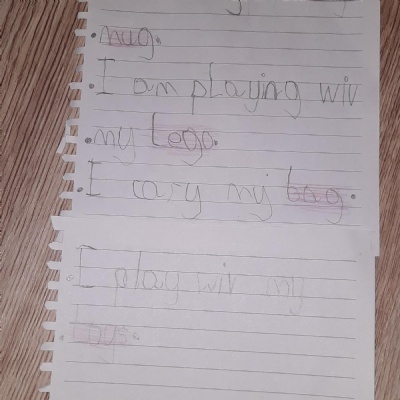 mug.
I am playing wiv
my Lego.
I cary my bag.
I play wiv my
toys.